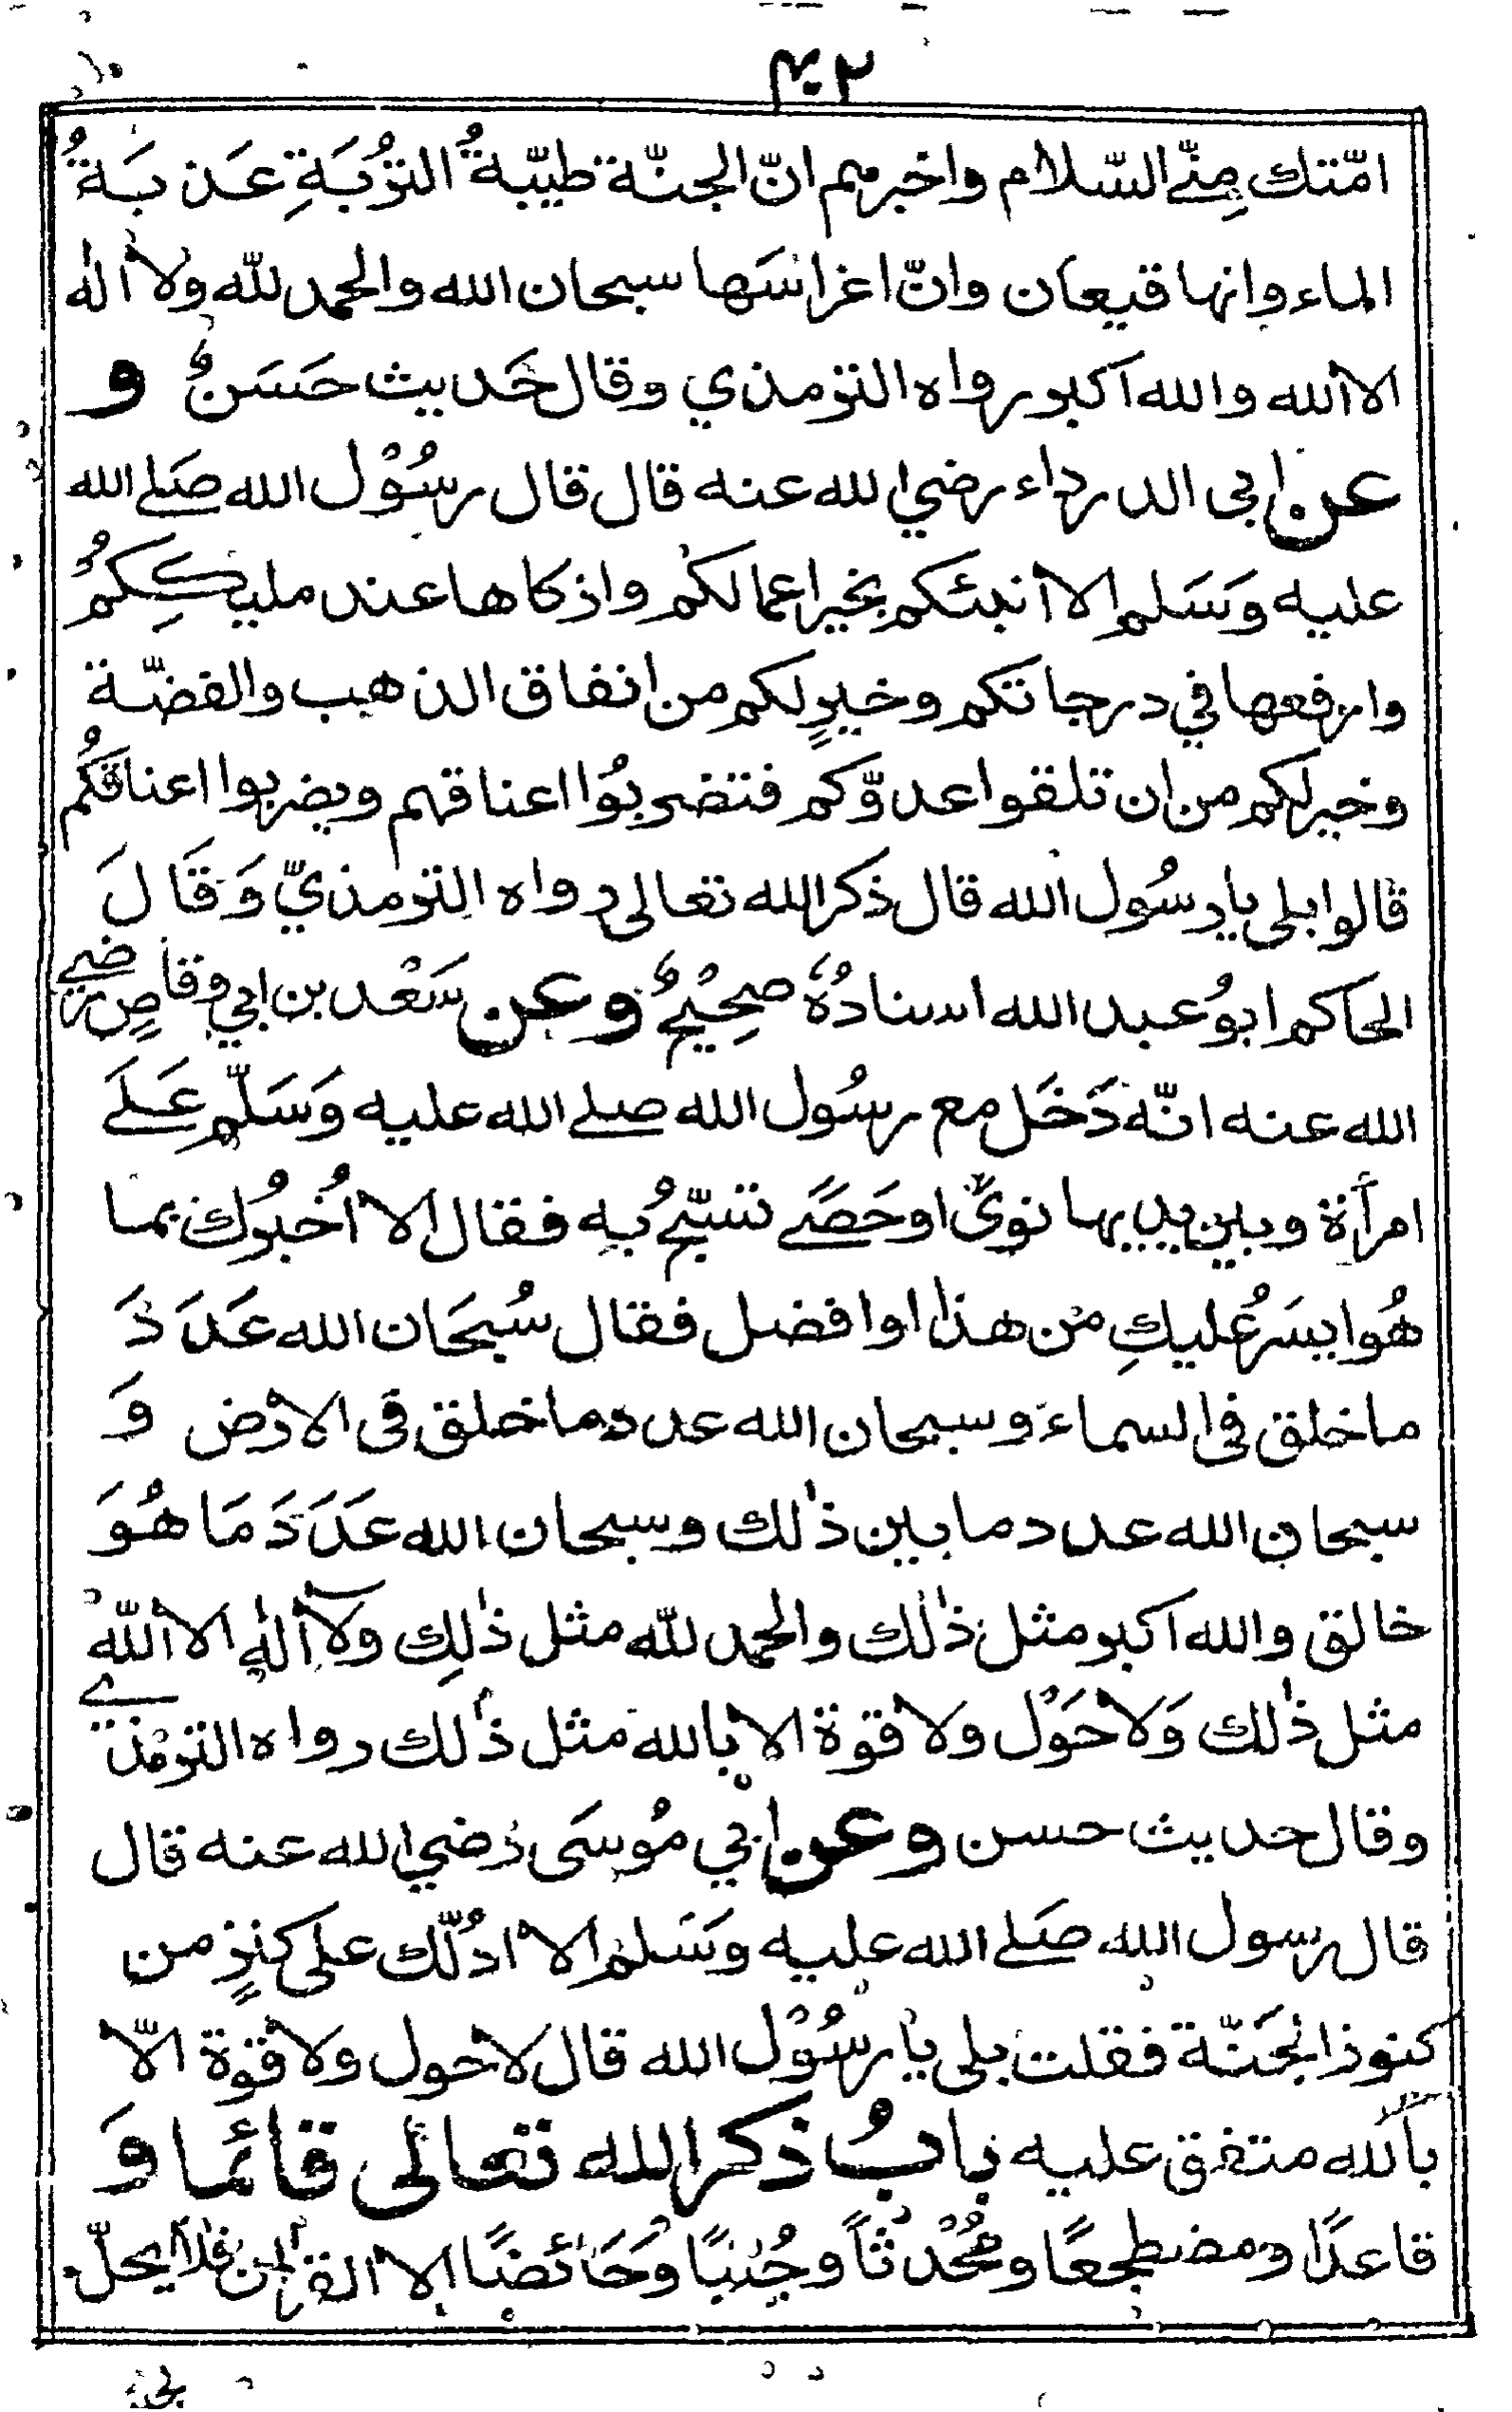 ٤٠٢
امّتك مِنّي السّلام واخبرهم انّ الجنّة طيّبةُ التُّربَةِ عَذبَةُ
الماء وانها قيعان وانّ اغراسَها سبحان الله والحمد للّه ولا اله
الا الله والله اكبر رواه الترمذي وقال حَديث حَسَنٌ و
عن ابي الدرداء رضي الله عنه قال قال رسُوْل الله صَلى الله
عليه وَسَلم الا انبئكم بخير اعمالكم وازكاها عند مليكِكمُ
وارفعها في درجاتكم وخيرٍ لكم من انفاق الذهب والفضّة
وخير لكم من ان تلقوا عدوّكم فتضربُوا اعناقهم ويضربوا اعناقكُم
قالوا بلى يا رسُول الله قال ذكر الله تعالى رواه الترمذيّ وَقَالَ
الحاكم ابوُ عبد الله اسنادُهُ صحِيْحٌ وعن سَعْد بن ابي وقاصٍ رضي
الله عنه انّه دَخَل مع رسُول الله صلى الله عليه وَسَلّم عَلَى
امرأة وبين يديها نوىً او حَصًى تسَبّحُ به فقال الا اُخبرُك بما
هُو ايسَرُ عليكِ منْ هذا او افضل فقال سُبحَان الله عَدَدَ
ما خلق في السماء وسبحان الله عدد ما خلق في الارض وَ
سبحان الله عدد ما بين ذٰلك وسبحان الله عَدَدَ مَا هُوَ
خالق والله اكبر مثل ذٰلك والحمد للّه مثل ذٰلِك ولا الٰه الا اللّه
مثل ذٰلك وَلا حَوْل ولا قوة الا بالله مثل ذٰلك رواه الترمْذي
وقال حديث حسن وعن ابي مُوسَى رَضي الله عنه قال
قال رسول الله صَلى الله عليه وَسَلم الا ادُلّك على كنزٍ من
كنوز الجَنّة فقلت بلى يا رسُوْل الله قال لا حول ولا قوة الّا
بالله متفق عليه بابُ ذكر الله تعالى قائما وَ
قاعدًا ومضطجعًا ومحْدثاً وجُنبًا وَحَائضًا الا القرآن فلا يحلّ